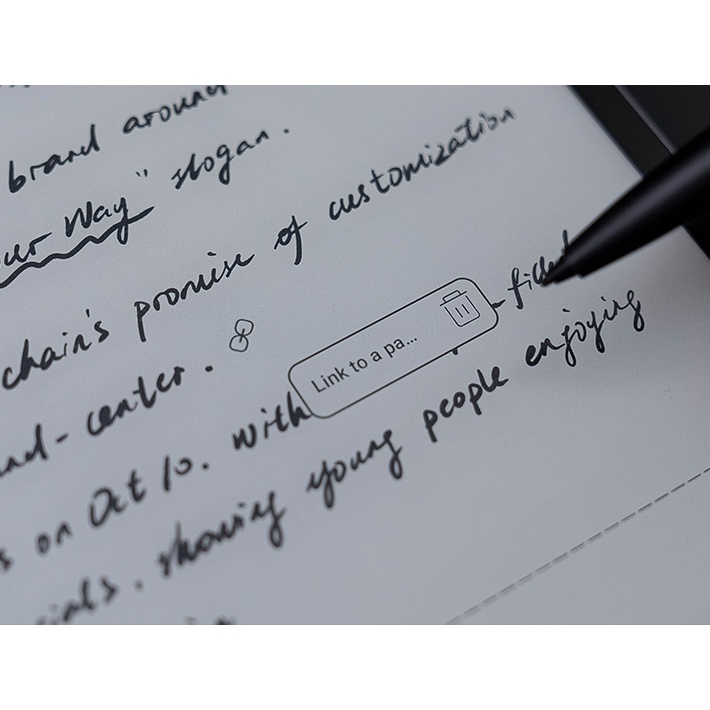 brand around
Way" slogan.
chain's promise of customization
center.
Link to a pa...
on Oct 10. with
showing young people enjoying